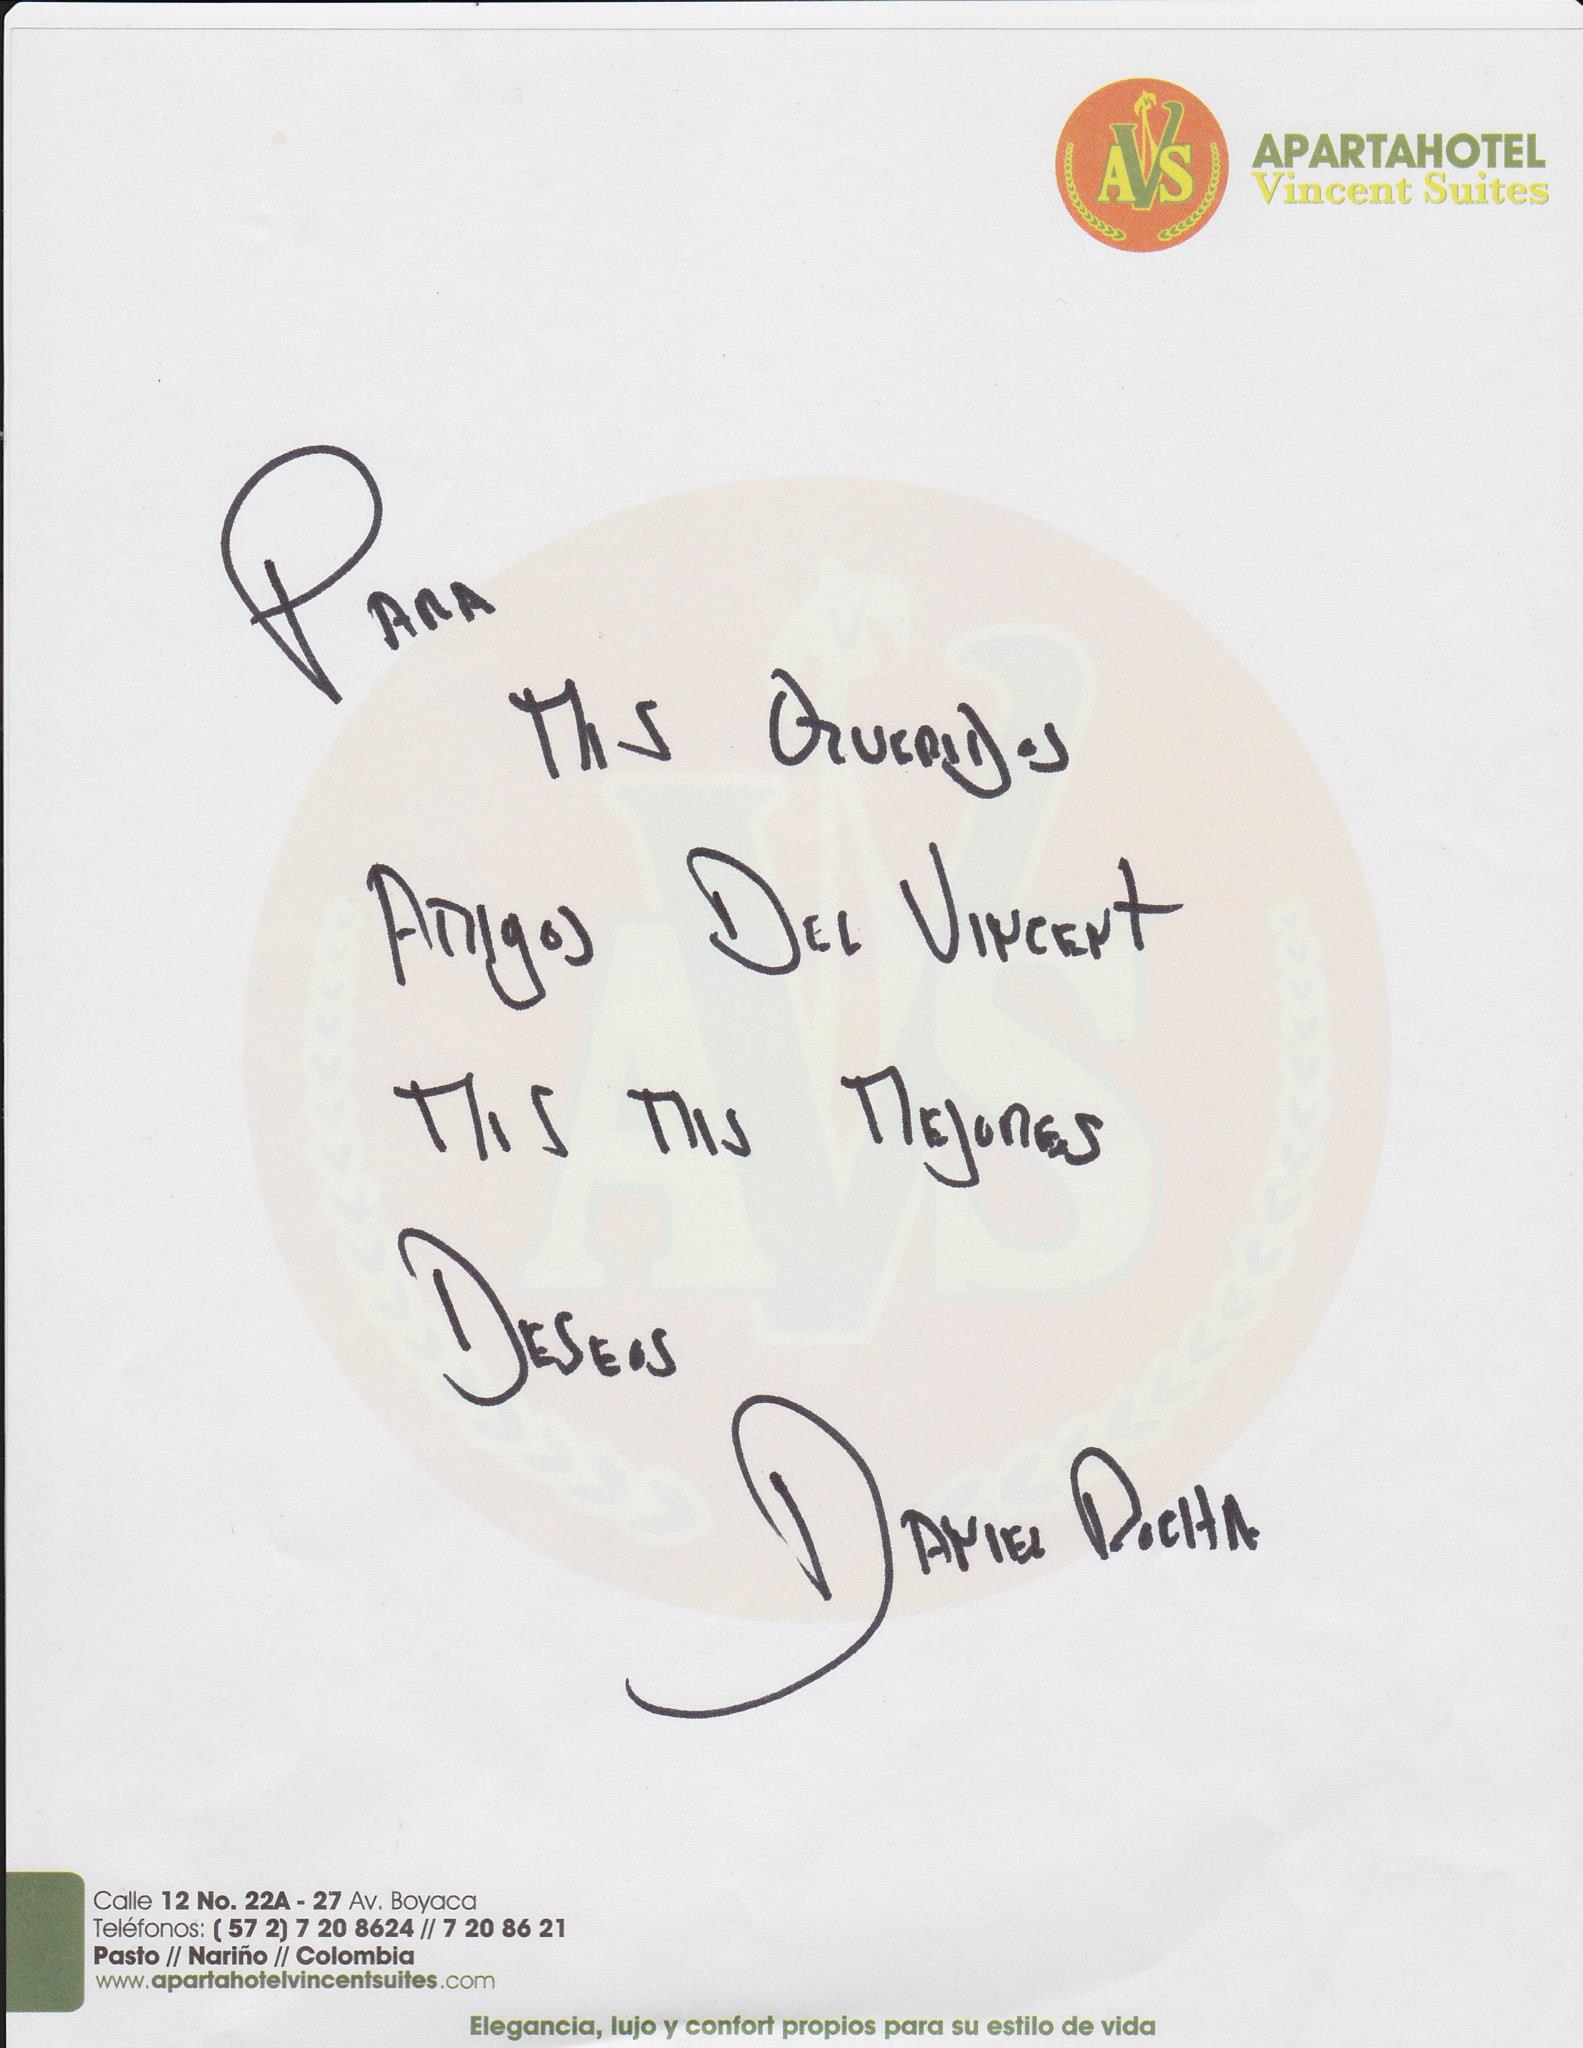 AVS
APARTAHOTEL
Vincent Suites
Para
Mis Queridos
Amigos Del Vincent
Mis Mis Mejores
Deseos
Daniel Rocha
Calle 12 No. 22A - 27 Av. Boyaca
Teléfonos: ( 57 2) 7 20 8624 // 7 20 86 21
Pasto // Nariño // Colombia
www.apartahotelvincentsuites.com
Elegancia, lujo y confort propios para su estilo de vida